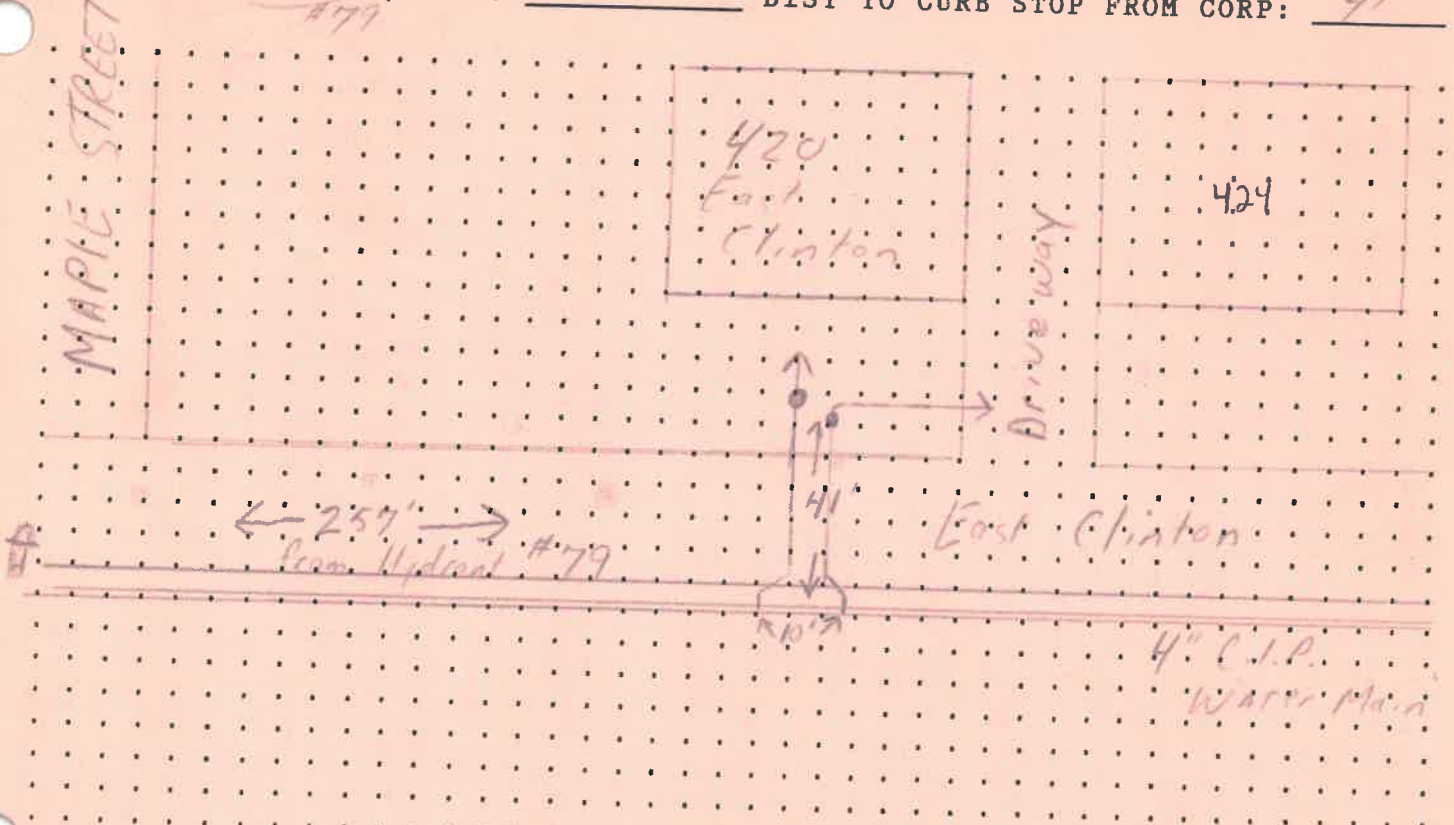 #79
DIST TO CURB STOP FROM CORP:
MAPlE STREET
420
East
Clinton
424
Driveway
41'
257'
from Hydrant #79
East Clinton
10'
4" C.I.P.
Water Main